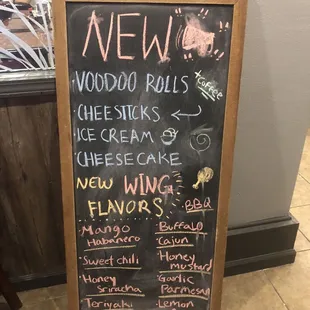 NEW
VOODOO ROLLS
+COFFEE
CHEESTICKS
ICE CREAM
CHEESECAKE
NEW WING
FLAVORS
BBQ
Mango
Habanero
Sweet chili
Honey
Sriracha
Teriyaki
Buffalo
Cajun
Honey
mustard
Garlic
Parmesan
Lemon